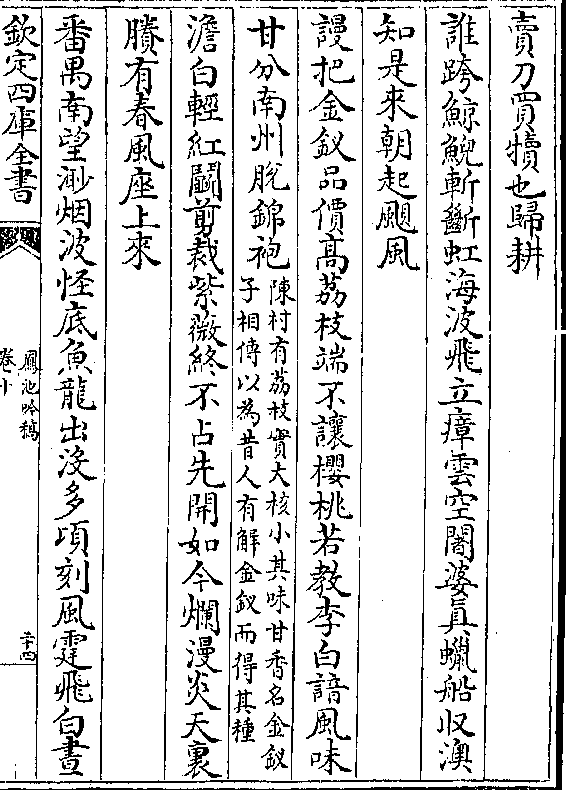 賣刀買犢也歸耕
誰跨鯨鯢斬斷虹海波飛立瘴雲空闍婆真蠟船收澳
知是來朝起颶風
謾把金釵品價髙荔枝端不讓櫻桃若教李白諳風味
甘分南州脱錦袍
陳村有荔枝實大核小其味甘香名金釵
子相傳以為昔人有解金釵而得其種
澹白輕紅鬬剪裁紫薇終不占先開如今爛漫炎天裏
賸有春風座上來
番禺南望渺烟波怪底魚龍出没多頃刻風霆飛白晝
欽定四庫全書
鳳池吟稿
卷十
二十四